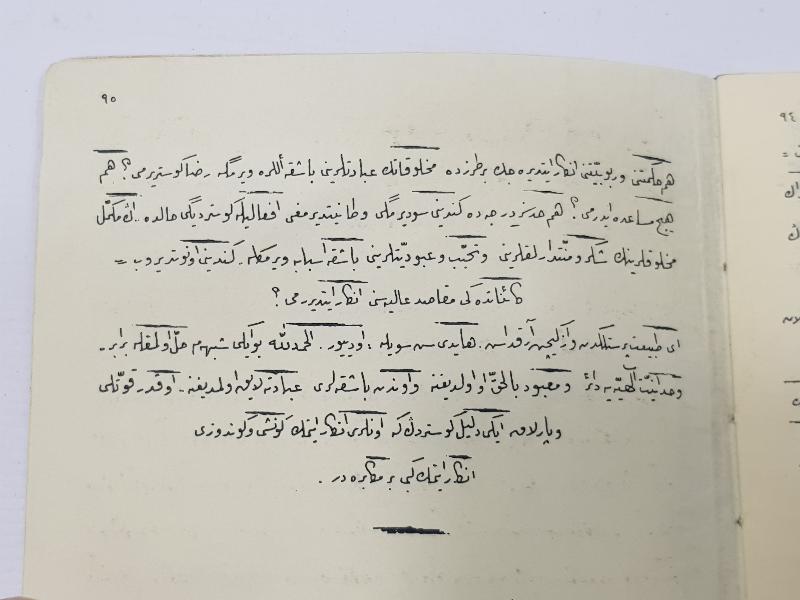 ٩٥
هم حكمتنى وربوبيّتنى انكار ايتديره جك بر طرزده مخلوقاتك عبادتلرينى باشقه اللره ويرمگه رضا كوستريرمى؟ هم
هيچ مساعده ايدرمى؟ هم حدسز درجه ده كندينى سوديرمگى وطانيتديرمغى افعاليله كوسترديگى حالده.. اڭ مكمّل
مخلوقلرينك شكر ومنّتدارلقلرينى وتحبّب وعبوديّتلرينى باشقه اسبابه ويرمكله. كندينى اونوتديروب =
كائناتده كى مقاصد عاليه سنى انكار ايتديررمى؟
اى طبيعت پرستلكدن واز گلن آرقداش. هايدى سن سويله: او دييور. الحمد لله بو ايكى شبهه م حلّ اولمقله برابر.
وحدانيّت الهيّه يه دائر ومعبود بالحقّ او اولديغنه واوندن باشقه لرى عبادته لايق اولمديغنه. او قدر قوّتلى
وپارلاق ايكى دليل كوستردڭ كه اونلرى انكار ايتمك كونشى وكوندوزى
انكار ايتمك گبى بر مكابره در.
٩٤